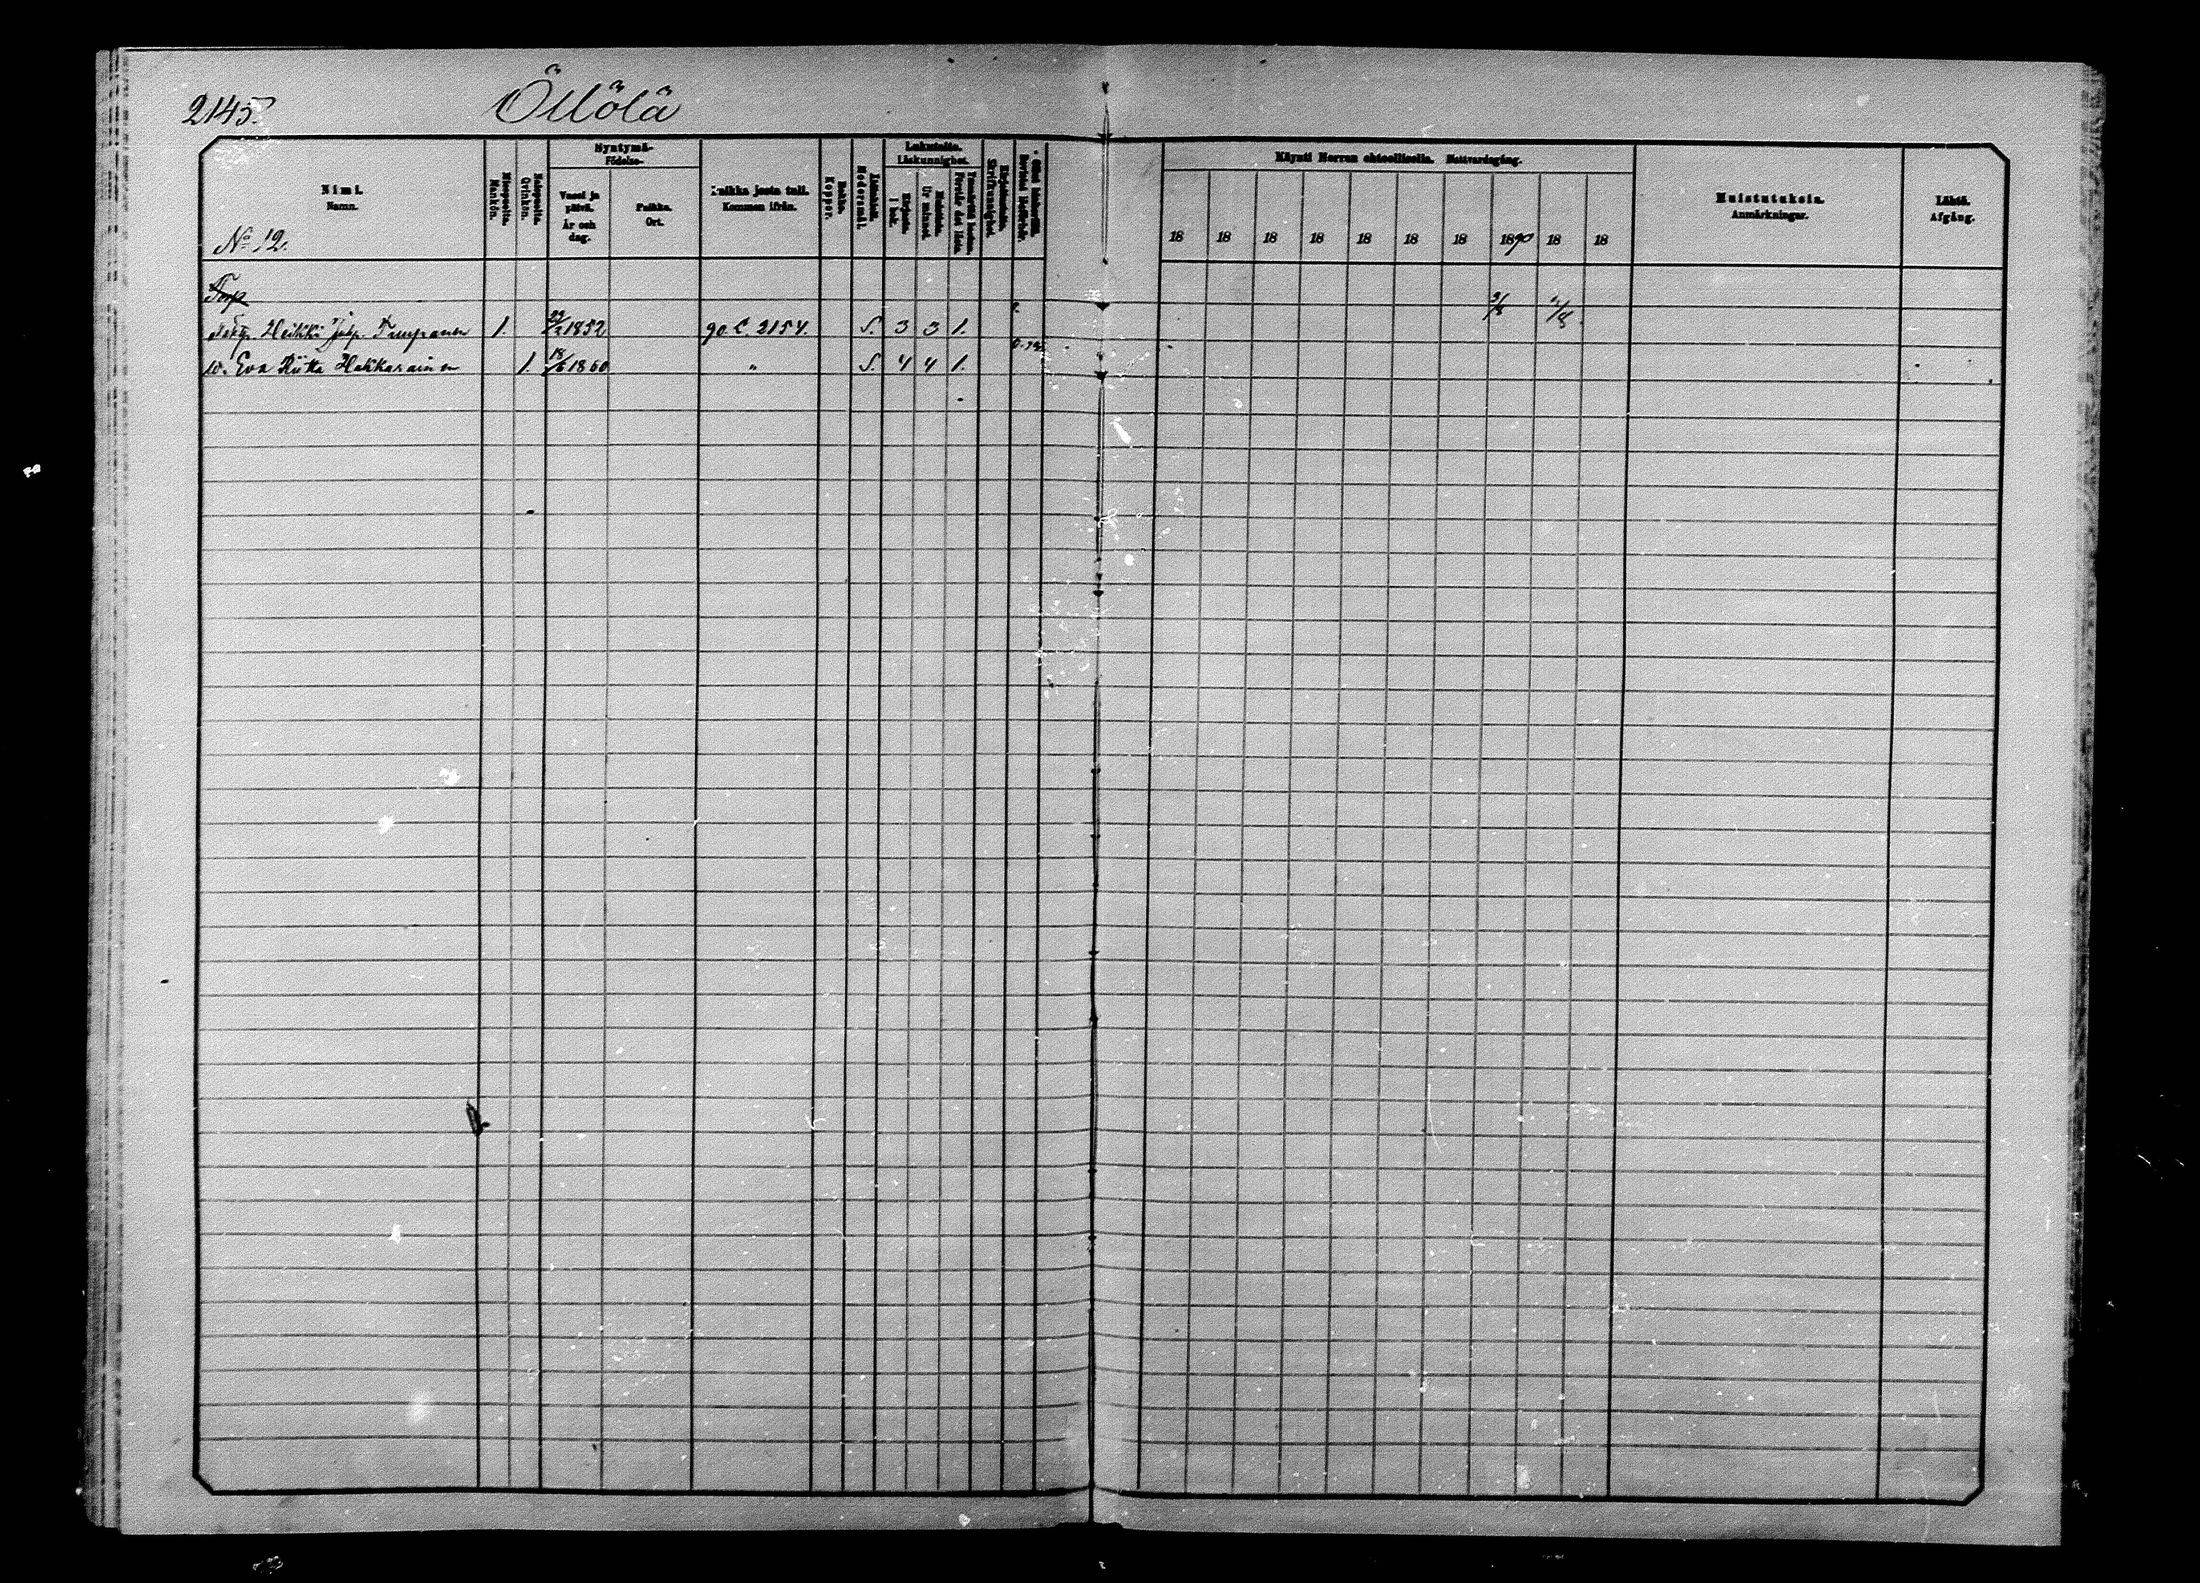 2145.
Öllölä
Nimi.
Namn.
No 12.
Miespuolta.
Mankön.
Naispuolta.
Qvinkön.
Syntymä-
Födelse-
Vuosi ja
päivä.
År och
dag.
Paikka.
Ort.
Paikka josta tuli.
Kommen ifrån.
Rokko.
Koppor.
Äidinkieli.
Modersmål.
Lukutaito.
Läskunnighet.
Kirjasta.
I bok.
Muistista.
Ur minnet.
Förstår det lästa.
Kirjoitustaito.
Skrifkunnighet.
Bevistat läsförhör.
Käynti Herran ehtoollisella. Nattvardsgång.
18 18 18 18 18 18 18 1890 18 18
Muistutuksia.
Anmärkningar.
Lähtö.
Afgång.
Torp
Heikki Timpanen 1. 1852 90 C. 2154. S. 3 3 1.
Eva Riitta Hakkarainen 1. 18/6 1860 " S. 4 4 1.